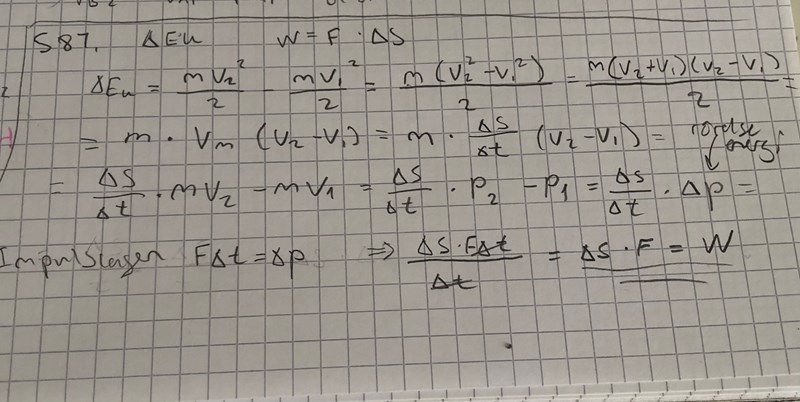 587. ΔEk W = F · ΔS
ΔEk = mv₂²/2 - mv₁²/2 = m(v₂² - v₁²)/2 = m(v₂+v₁)(v₂-v₁)/2 =
= m · Vm (v₂-v₁) = m · ΔS/Δt (v₂-v₁) = rörelse
= ΔS/Δt · mv₂ - mv₁ = ΔS/Δt · p₂ - p₁ = ΔS/Δt · Δp =
Impulslagen FΔt = Δp ⇒ ΔS·FΔt/Δt = ΔS · F = W